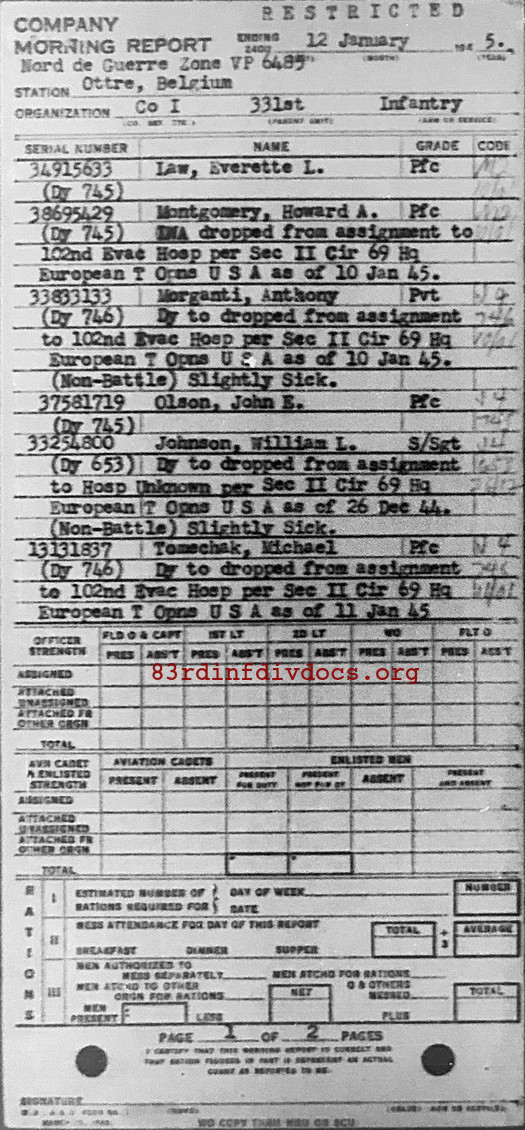 RESTRICTED
COMPANY
MORNING REPORT ENDING 2400 12 January 194 5.
Nord de Guerre Zone VP 6485
STATION Ottre, Belgium
ORGANIZATION Co I 331st Infantry
(PARENT UNIT) (ARM OR SERVICE)
SERIAL NUMBER NAME GRADE CODE
34915633 Law, Everette L. Pfc
(Dy 745)
38695429 Montgomery, Howard A. Pfc
(Dy 745) dropped from assignment to
102nd Evac Hosp per Sec II Cir 69 Hq
European T Opns U S A as of 10 Jan 45.
33833133 Morganti, Anthony Pvt
(Dy 746) Dy to dropped from assignment
to 102nd Evac Hosp per Sec II Cir 69 Hq
European T Opns U S A as of 10 Jan 45.
(Non-Battle) Slightly Sick.
37581719 Olson, John E. Pfc
(Dy 745)
33254800 Johnson, William L. S/Sgt
(Dy 653) Dy to dropped from assignment
to Hosp Unknown per Sec II Cir 69 Hq
European T Opns U S A as of 26 Dec 44.
(Non-Battle) Slightly Sick.
13131837 Tomechak, Michael Pfc
(Dy 746) Dy to dropped from assignment
to 102nd Evac Hosp per Sec II Cir 69 Hq
European T Opns U S A as of 11 Jan 45
OFFICER STRENGTH FLD O & CAPT 1ST LT 2D LT WO FLT O
PRES ABS'T PRES ABS'T PRES ABS'T PRES ABS'T PRES ABS'T
ASSIGNED
83rdinfdivdocs.org
ATTACHED UNASSIGNED
ATTACHED FR OTHER ORGN
TOTAL
AVN CADET & ENLISTED STRENGTH AVIATION CADETS ENLISTED MEN
PRESENT ABSENT PRESENT FOR DUTY PRESENT NOT FOR DY ABSENT PRESENT AND ABSENT
ASSIGNED
ATTACHED UNASSIGNED
ATTACHED FR OTHER ORGN
TOTAL
RATIONS
I ESTIMATED NUMBER OF RATIONS REQUIRED FOR DAY OF WEEK DATE NUMBER
II MESS ATTENDANCE FOR DAY OF THIS REPORT TOTAL ÷ 3 AVERAGE
BREAKFAST DINNER SUPPER
III MEN AUTHORIZED TO MESS SEPARATELY MEN ATCHD FOR RATIONS
MEN ATCHD TO OTHER ORGN FOR RATIONS NET O & OTHERS MESSED TOTAL
MEN PRESENT LESS PLUS
PAGE 1 OF 2 PAGES
I CERTIFY THAT THIS MORNING REPORT IS CORRECT AND
THAT RATION FIGURES IN PART III REPRESENT AN ACTUAL
COUNT AS REPORTED TO ME.
SIGNATURE